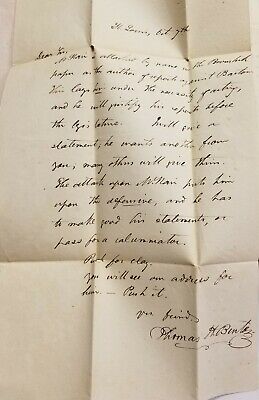 St Louis, Oct 7th
Dear Sir,
McNair is attacked by name in the Brunswick
paper as the author of reports against Barton.
This lays him under the necessity of acting,
and he will justify his reports before
the legislature. Will give a
statement; he wants another from
you; many others will give them.
The attack upon McNair puts him
upon the defensive, and he has
to make good his statements, or
pass for a calumniator.
for Clay.
You will see an address for
him — Push it.
yr friend,
Thomas H Benton